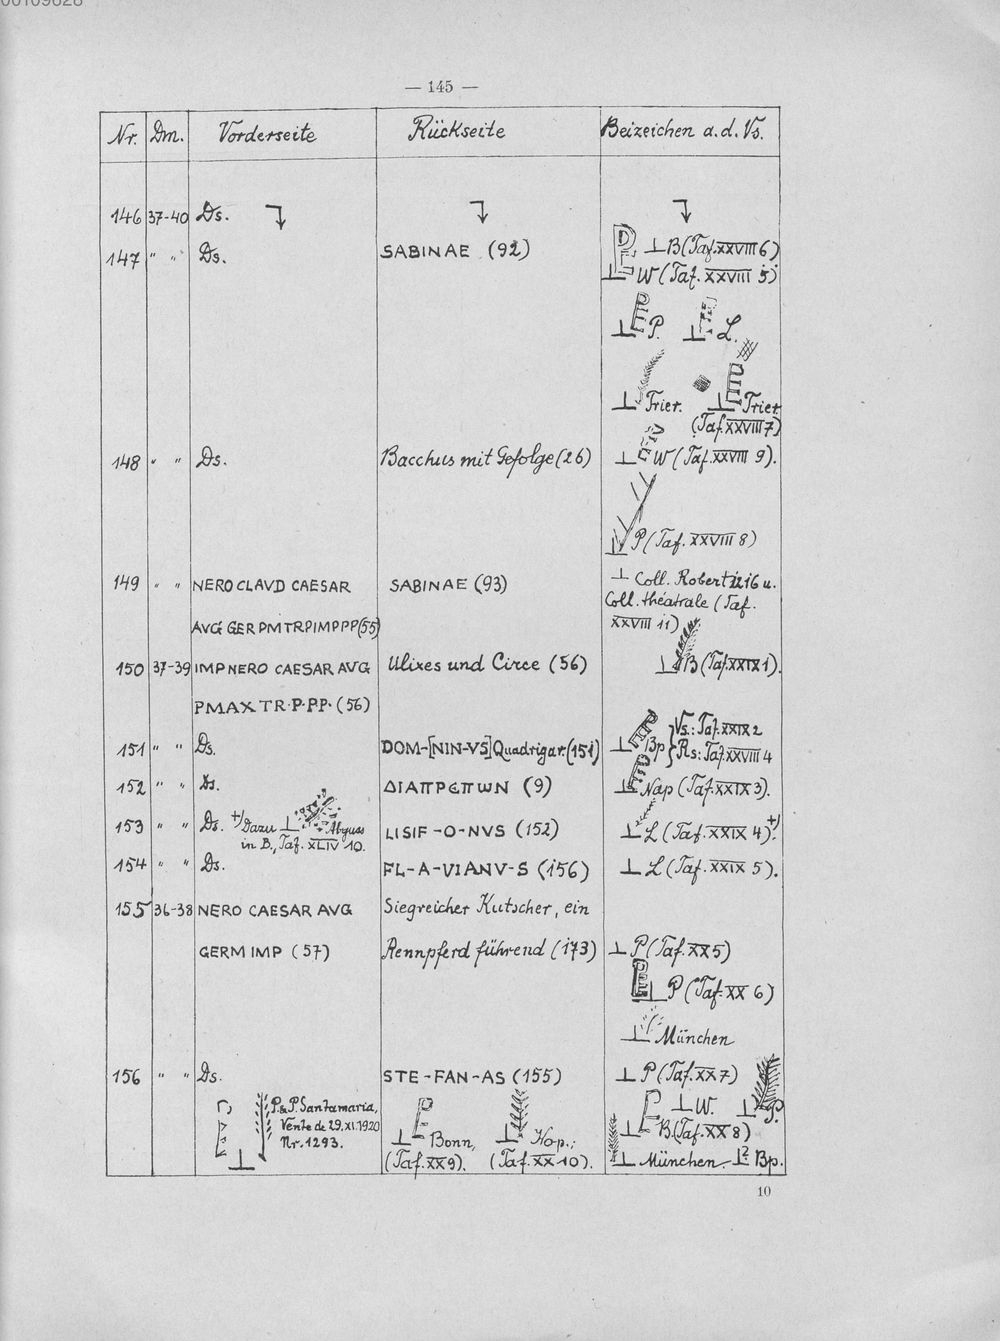 — 145 —
Nr. Dm. Vorderseite Rückseite Beizeichen a.d. Vs.
146 37-40 Ds.
147 " " Ds. SABINAE (92) ⊥ B (Taf. XXVIII 6)
⊥ W (Taf. XXVIII 5)
⊥ P. ⊥ L.
⊥ Trier. ⊥ Trier
(Taf. XXVIII 7)
148 " " Ds. Bacchus mit Gefolge (26) ⊥ W (Taf. XXVIII 9).
P (Taf. XXVIII 8)
149 " " NERO CLAVD CAESAR SABINAE (93) ⊥ Coll. Robert 1216 u.
Coll. théatrale (Taf.
AVG GER PM TRP IMP PP (55) XXVIII 11)
150 37-39 IMP NERO CAESAR AVG Ulixes und Circe (56) ⊥ B (Taf XXIX 1).
PMAX TR·P·PP· (56)
151 " " Ds. DOM-[NIN-VS] Quadrigar. (151) ⊥ Bp } Vs.: Taf. XXIX 2
Rs: Taf. XXVIII 4
152 " " Ds. ΔΙΑΠΡΕΠωΝ (9) ⊥ Nap (Taf. XXIX 3).
153 " " Ds. +) Dazu ⊥ Abguss LISIF-O-NVS (152) ⊥ L (Taf. XXIX 4)+).
in B., Taf. XLIV 10.
154 " " Ds. FL-A-VIANV-S (156) ⊥ L (Taf. XXIX 5).
155 36-38 NERO CAESAR AVG Siegreicher Kutscher, ein
GERM IMP (57) Rennpferd führend (173) ⊥ P (Taf. XX 5)
⊥ P (Taf. XX 6)
⊥ München
156 " " Ds. STE-FAN-AS (155) ⊥ P (Taf. XX 7)
P.&P. Santamaria, ⊥ W. ⊥ P.
Vente de 29.XI.1920 ⊥ Bonn, ⊥ Kop.; ⊥ B. (Taf. XX 8)
Nr. 1293. (Taf. XX 9). (Taf. XX 10). ⊥ München. ⊥? Bp.
10